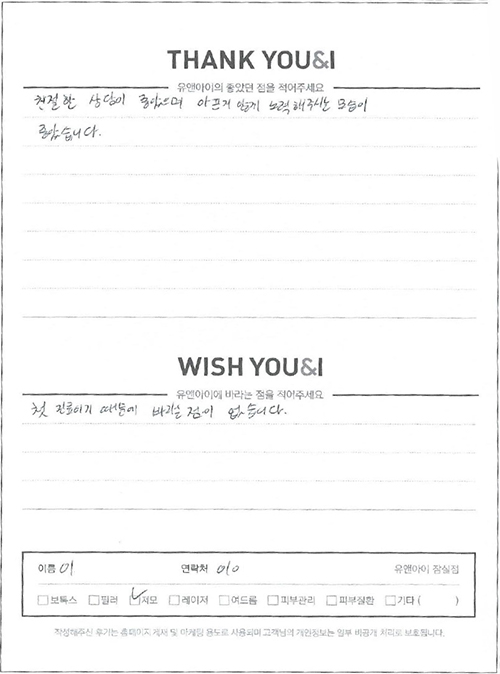 THANK YOU&I
유앤아이의 좋았던 점을 적어주세요
친절한 상담이 좋았으며 아프지 않게 노력해주시는 모습이
좋았습니다.
WISH YOU&I
유앤아이에 바라는 점을 적어주세요
첫 진료이기 때문에 바라는 점이 없습니다.
이름 이 연락처 010 유앤아이 잠실점
보톡스 필러 제모 레이저 여드름 피부관리 피부질환 기타 ( )
작성해주신 후기는 홈페이지 게재 및 마케팅 용도로 사용되며 고객님의 개인정보는 일부 비공개 처리로 보호됩니다.